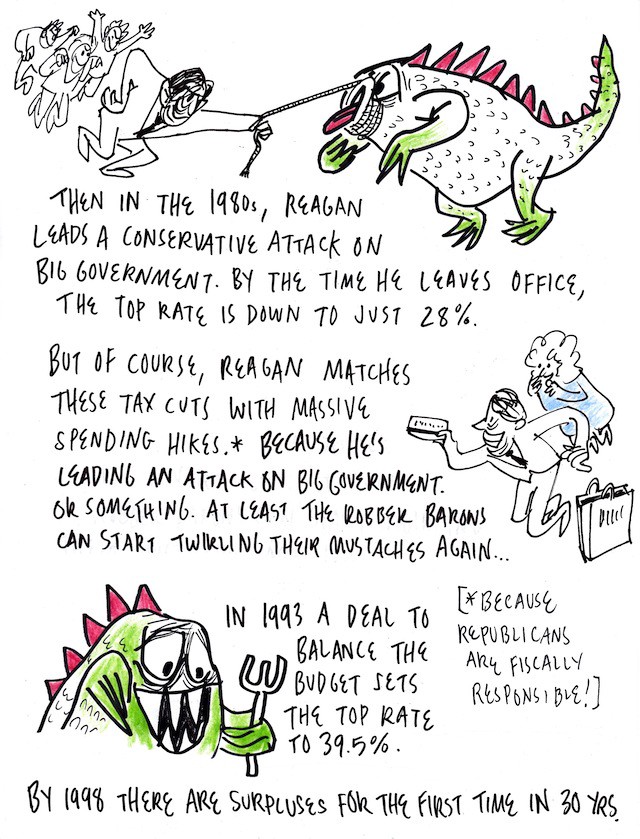 THEN IN THE 1980s, REAGAN
LEADS A CONSERVATIVE ATTACK ON
BIG GOVERNMENT. BY THE TIME HE LEAVES OFFICE,
THE TOP RATE IS DOWN TO JUST 28%.
BUT OF COURSE, REAGAN MATCHES
THESE TAX CUTS WITH MASSIVE
SPENDING HIKES.* BECAUSE HE'S
LEADING AN ATTACK ON BIG GOVERNMENT.
OR SOMETHING. AT LEAST THE ROBBER BARONS
CAN START TWIRLING THEIR MUSTACHES AGAIN...
IN 1993 A DEAL TO
BALANCE THE
BUDGET SETS
THE TOP RATE
TO 39.5%.
[*BECAUSE
REPUBLICANS
ARE FISCALLY
RESPONSIBLE!]
BY 1998 THERE ARE SURPLUSES FOR THE FIRST TIME IN 30 YRS.